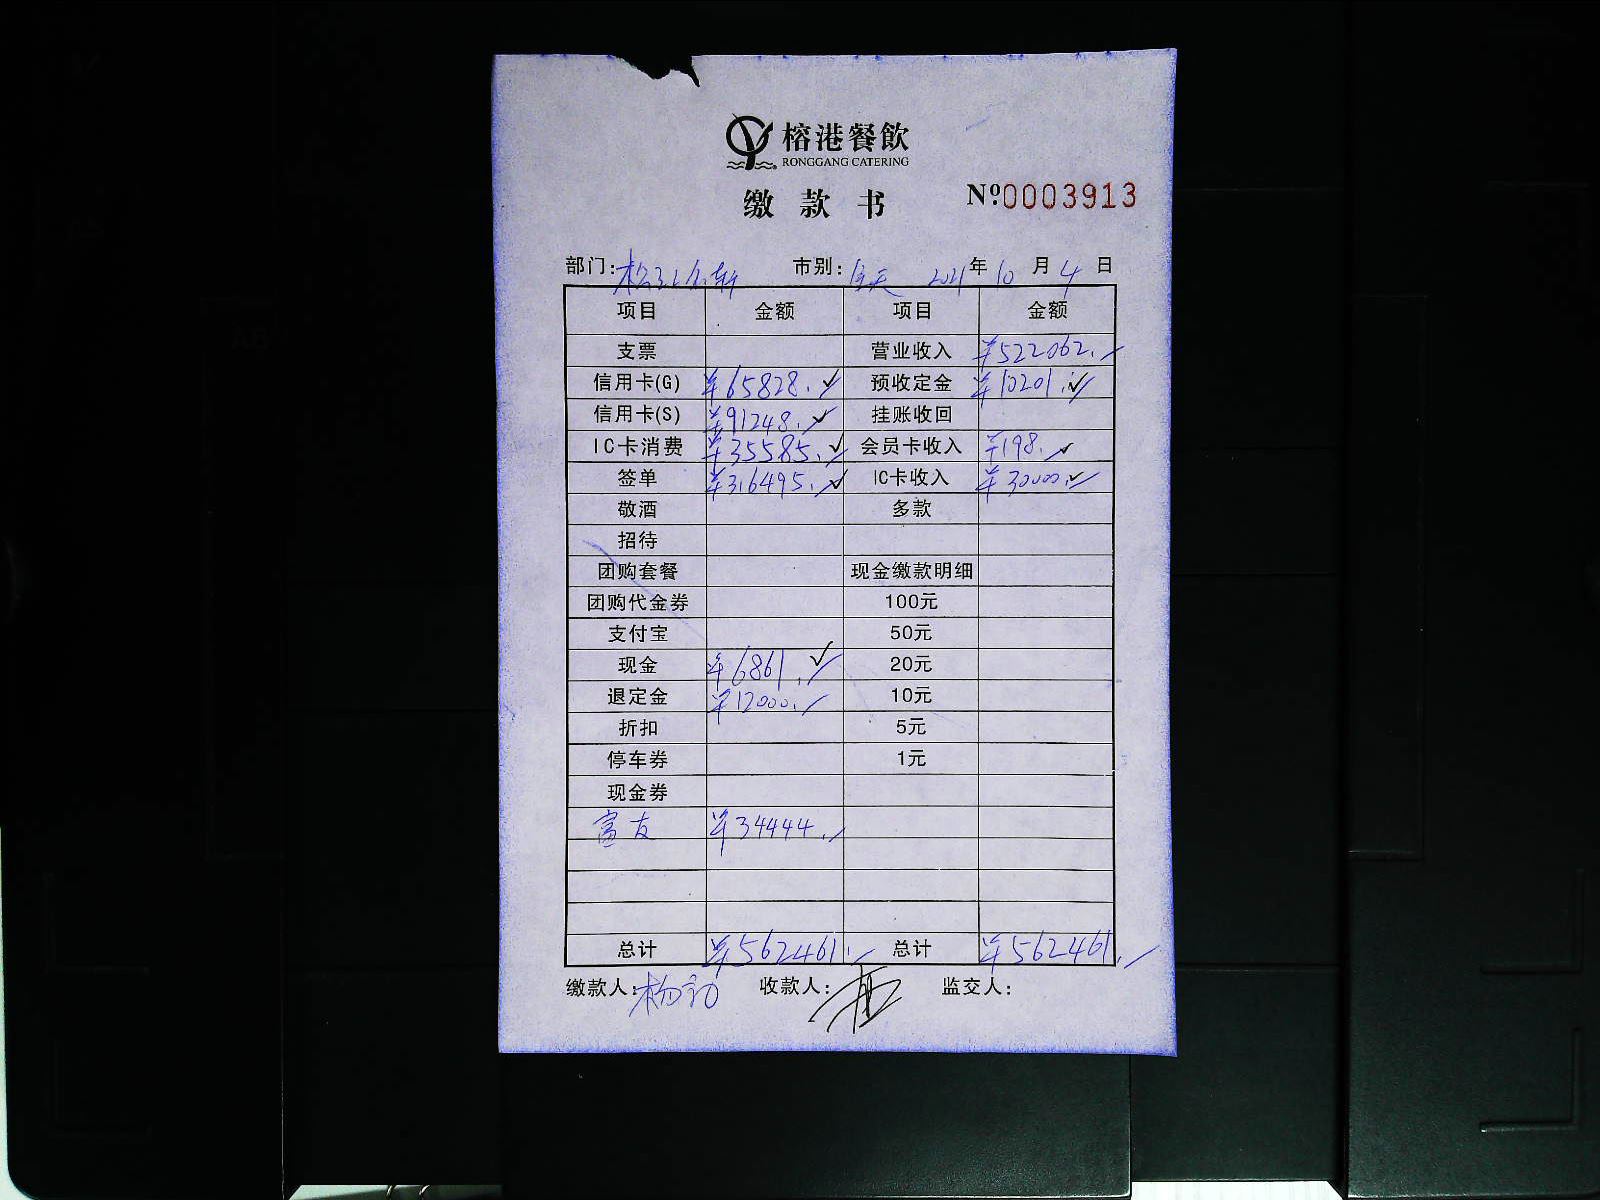 榕港餐飲
RONGGANG CATERING
缴款书 Nº:0003913
部门: 市别:全天 2021年10月4日
项目 金额 项目 金额
支票 营业收入 ¥522062.
信用卡(G) ¥65828. 预收定金 ¥10201.
信用卡(S) ¥91248. 挂账收回
IC卡消费 ¥35585. 会员卡收入 ¥198.
签单 ¥316495. IC卡收入 ¥30000.
敬酒 多款
招待
团购套餐 现金缴款明细
团购代金券 100元
支付宝 50元
现金 ¥6861. 20元
退定金 ¥12000. 10元
折扣 5元
停车券 1元
现金券
富友 ¥34444.
总计 ¥562461. 总计 ¥562461.
缴款人: 收款人: 监交人: